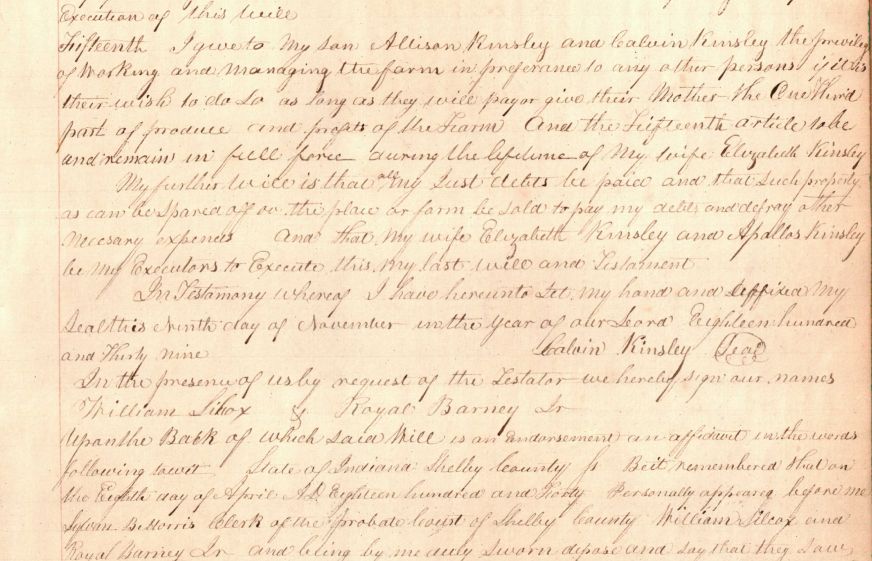 Execution of this will
Fifteenth I give to My son Allison Kinsley and Calvin Kinsley the privileg
of Working and Managing the farm in preferance to any other persons if it is
their wish to do so as long as they will pay or give their Mother the One Third
part of produce and profits of the Farm And the Fifteenth article to be
and remain in full force during the lifetime of My wife Elizabeth Kinsley
My further will is that all my Just debts be paid and that such property
as can be spared of or the place or farm be sold to pay my debts and defray other
necesary expences And that My wife Elizabeth Kinsley and Apollos Kinsley
be My Executors to Execute this my last will and Testament
In Testamony whereof I have hereunto Set my hand and affixed My
Seal this Ninth day of November in the Year of our Lord Eighteen hundred
and Thirty nine Calvin Kinsley Seal
In the presence of us by request of the Testator we hereby sign our names
William Silcox & Royal Barney Jr
Upon the Back of which said Will is an Endorsement an affidavit in the words
following towit State of Indiana Shelby County Ss Beit remembered that on
the Eighth day of April AD Eighteen hundred and Forty Personally appeared before me
Sylvan B Morris Clerk of the Probate Court of Shelby County William Silcox and
Royal Barney Jr and being by me duly Sworn depose and say that they saw